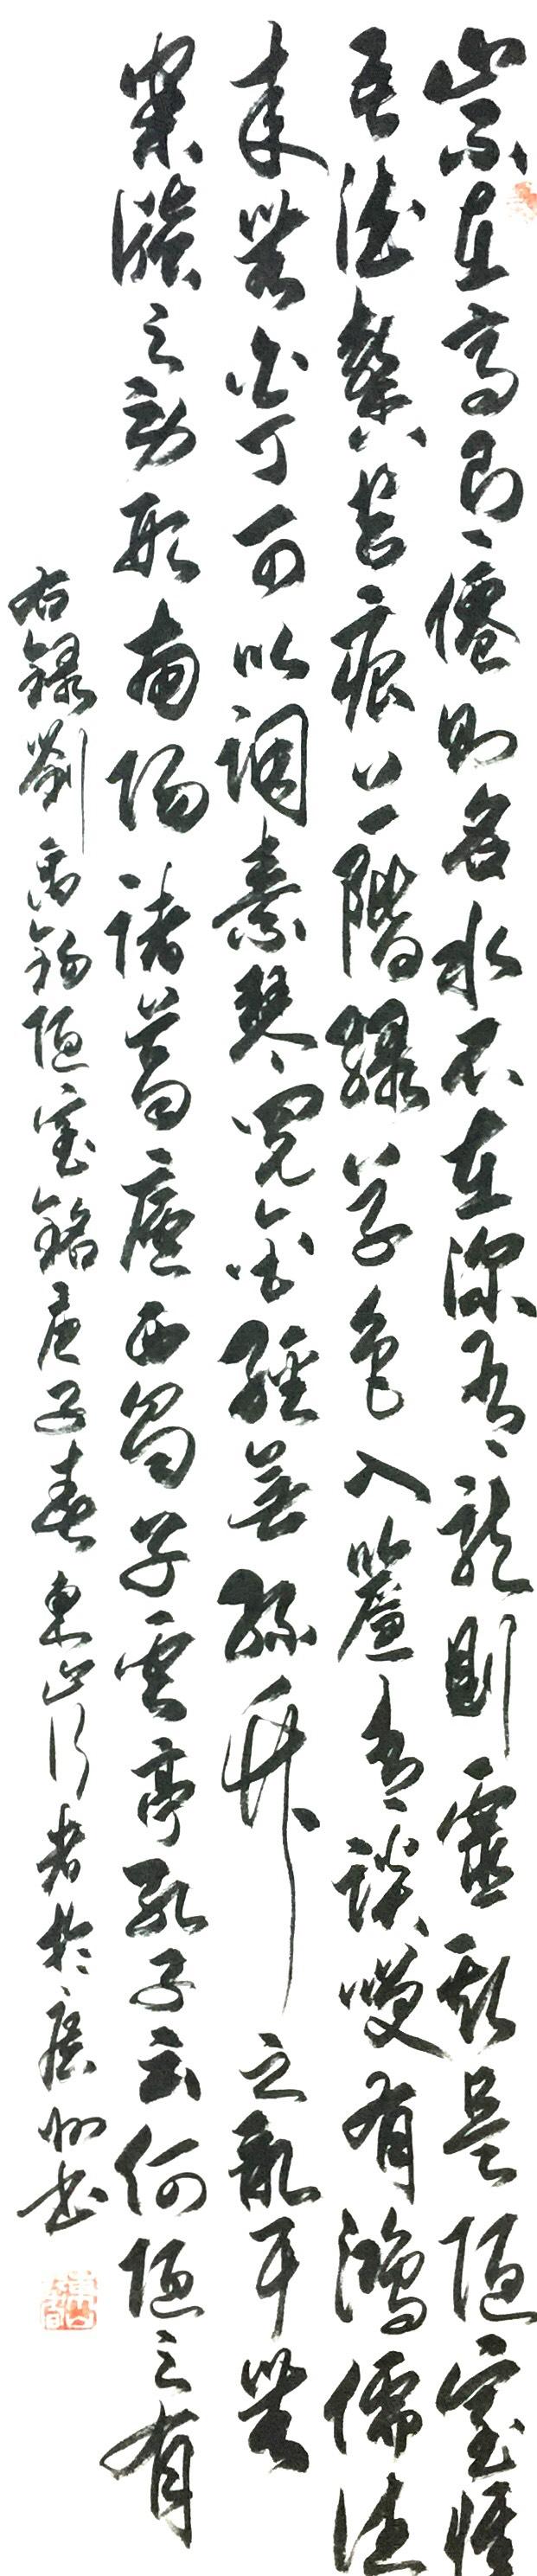 山不在高有僊則名水不在深有龍則靈斯是陋室惟
吾德馨苔痕上階綠草色入簾青談笑有鴻儒往
來無白丁可以調素琴閱金經無絲竹之亂耳無
案牘之勞形南陽諸葛廬西蜀子雲亭孔子云何陋之有
右錄劉禹錫陋室銘庚子春東山行者於廣州書